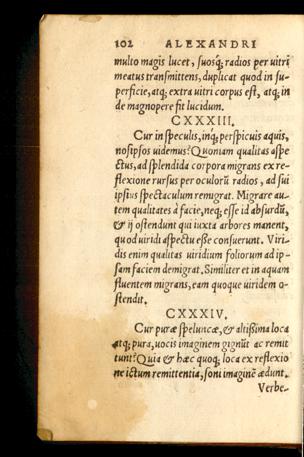 102 ALEXANDRI
multo magis lucet, suosq́; radios per uitri
meatus transmittens, duplicat quod in su-
perficie, atq; extra uitri corpus est, atq; in
de magnopere fit lucidum.
CXXXIII.
Cur in speculis, inq; perspicuis aquis,
nosipsos uidemus? Quoniam qualitas aspe
ctus, ad splendida corpora migrans ex re-
flexione rursus per oculorũ radios, ad sui
ipsius spectaculum remigrat. Migrare au-
tem qualitates à facie, neq; esse id absurdũ,
& ij ostendunt qui iuxta arbores manent,
quod uiridi aspectu esse consuerunt. Viri-
dis enim qualitas uiridium foliorum ad ip-
sam faciem demigrat. Similiter et in aquam
fluentem migrans, eam quoque uiridem o-
stendit.
CXXXIV.
Cur puræ speluncæ, & altissima loca
atq; pura, uocis imaginem gignũt ac remit
tunt? Quia & hæc quoq; loca ex reflexio
ne ictum remittentia, soni imaginẽ ædunt.
Verbe-